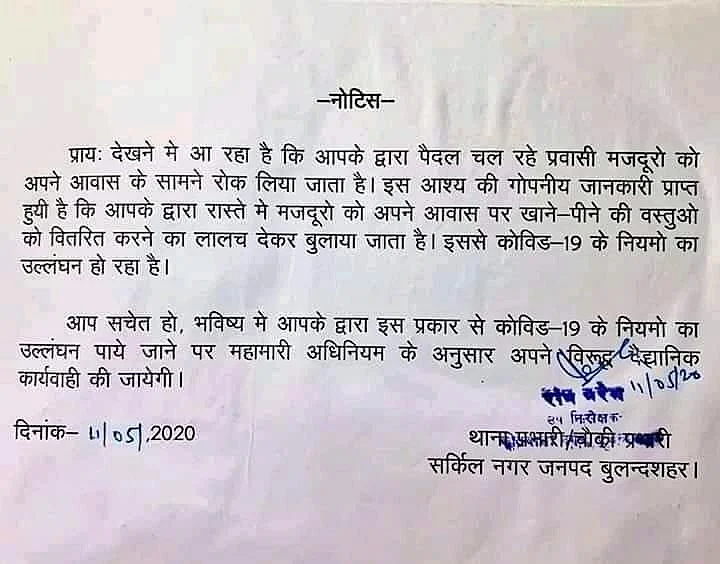 –नोटिस–
प्रायः देखने मे आ रहा है कि आपके द्वारा पैदल चल रहे प्रवासी मजदूरो को
अपने आवास के सामने रोक लिया जाता है। इस आश्य की गोपनीय जानकारी प्राप्त
हुयी है कि आपके द्वारा रास्ते मे मजदूरो को अपने आवास पर खाने–पीने की वस्तुओ
को वितरित करने का लालच देकर बुलाया जाता है। इससे कोविड–19 के नियमो का
उल्लंघन हो रहा है।
आप सचेत हो, भविष्य मे आपके द्वारा इस प्रकार से कोविड–19 के नियमो का
उल्लंघन पाये जाने पर महामारी अधिनियम के अनुसार अपने विरूद्ध वैद्यानिक
कार्यवाही की जायेगी।
11/05/20
उप निरीक्षक
दिनांक– 11/05/,2020
थाना प्रभारी/चौकी प्रभारी
सर्किल नगर जनपद बुलन्दशहर।